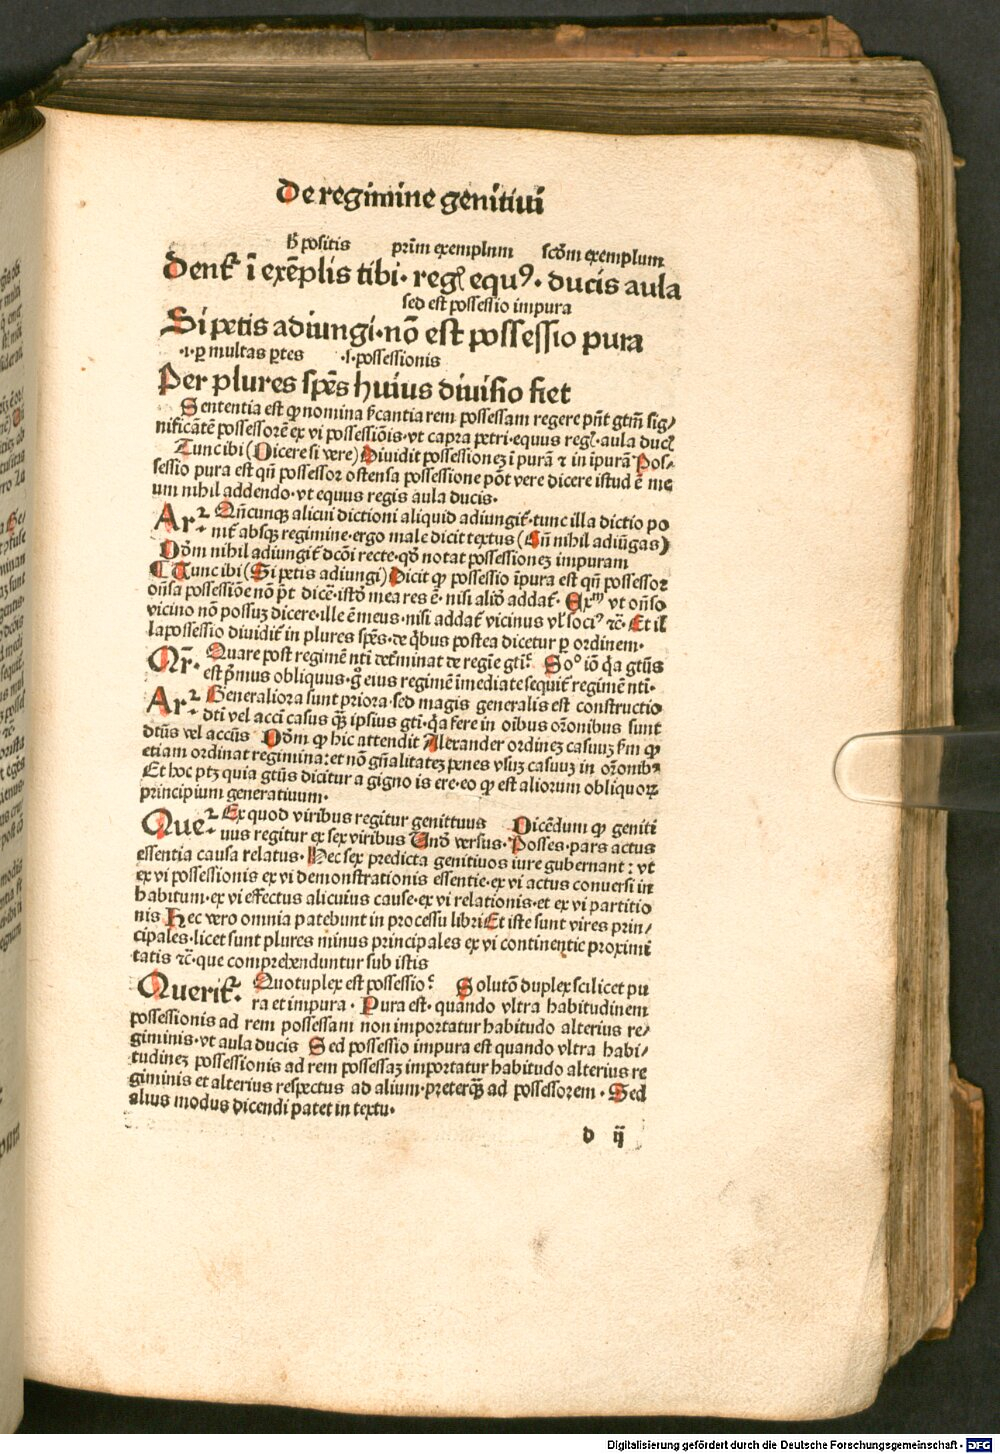 De regimine genitiui
h̄ positis prim̄ exemplum scd̄m exemplum
Dent̄ ī exēplis tibi· reḡ equꝰ· ducis aula
sed est possessio impura
Si petis adiungi·nō est possessio pura
·i·ꝑ multas ꝑtes ·s·possessionis
Per plures sp̄es huius diuisio fiet
Sententia est ꝙ nomina sic̄antia rem possessam regere pn̄t gtm̄ sig/
nificātē possessorē ex vi possessiōis·vt capra petri·equus reḡ·aula duc̄
Tunc ibi (Dicere si vere) Diuidit possessionez ī purā ⁊ in īpurā Pos/
sessio pura est qn̄ possessor ostensa possessione pōt vere dicere istud ē me
um nihil addendo·vt equus regis aula ducis·
Arꝰ Qn̄cunqꝫ alicui dictioni aliquid adiungit̄·tunc illa dictio po
nit̄ absqꝫ regimine·ergo male dicit textus (Cū nihil adiūgas)
Dd̄m nihil adiungit̄ dcōi recte·qd̄ notat possessionez impuram
¶ Tunc ibi (Si petis adiungi) Dicit ꝙ possessio īpura est qn̄ possessor
on̄sa possessiōe nō pt̄ dicē·istd̄ mea res ē· nisi aliō addat̄· Exm̄ vt on̄so
vicino nō possuz dicere·ille ē meus·nisi addat̄ vicinus vl̄ sociꝰ ⁊c̄· Et il
la possessio diuidit̄ in plures sp̄es·de q̄bus postea dicetur ꝑ ordinem·
Qr̄· Quare post regimē nti det̄minat de regīe gti· Soꝰ iō q̄a gtūs
est pʳmus obliquus·g̊ eius regimē īmediate sequit̄ regimē nti·
Arꝰ Generaliora sunt priora·sed magis generalis est constructio
dti vel acci casus qꝫ̄ ipsius gti·q̄a fere in oībus or̄onibus sunt
dtūs vel accūs Dd̄m ꝙ hic attendit Alexander ordinez casuuz fm̄ ꝙ
etiam ordinat regimina:et nō gn̄alitatez penes vsuz casuuz in or̄onibꝰ
Et hoc ptꝫ quia gtūs dicitur a gigno is ere·eo ꝙ est aliorum obliquoꝝ
principium generatiuum·
Queꝰ Ex quod viribus regitur genittuus Dicēdum ꝙ geniti
uus regitur ex sex viribus Vnd̄ versus·Posses·pars actus
essentia causa relatus·Hec sex predicta genitiuos iure gubernant: vt
ex vi possessionis ex vi demonstrationis essentie·ex vi actus conuersi in
habitum·ex vi effectus alicuius cause·ex vi relationis·et ex vi partitio
nis Hec vero omnia patebunt in processu libri Et iste sunt vires prin/
cipales·licet sunt plures minus principales ex vi continentie proximi
tatis ⁊c̄·que comprehenduntur sub istis
Querit̄· Quotuplex est possessio· Solutō duplex scilicet pu
ra et impura · Pura est· quando vltra habitudinem
possessionis ad rem possessam non importatur habitudo alterius re/
giminis·vt aula ducis Sed possessio impura est quando vltra habi/
tudinez possessionis ad rem possessaz importatur habitudo alterius re
giminis et alterius respectus ad alium·preterqꝫ̄ ad possessorem · Sed
alius modus dicendi patet in textu·
d ij
Digitalisierung gefördert durch die Deutsche Forschungsgemeinschaft - DFG